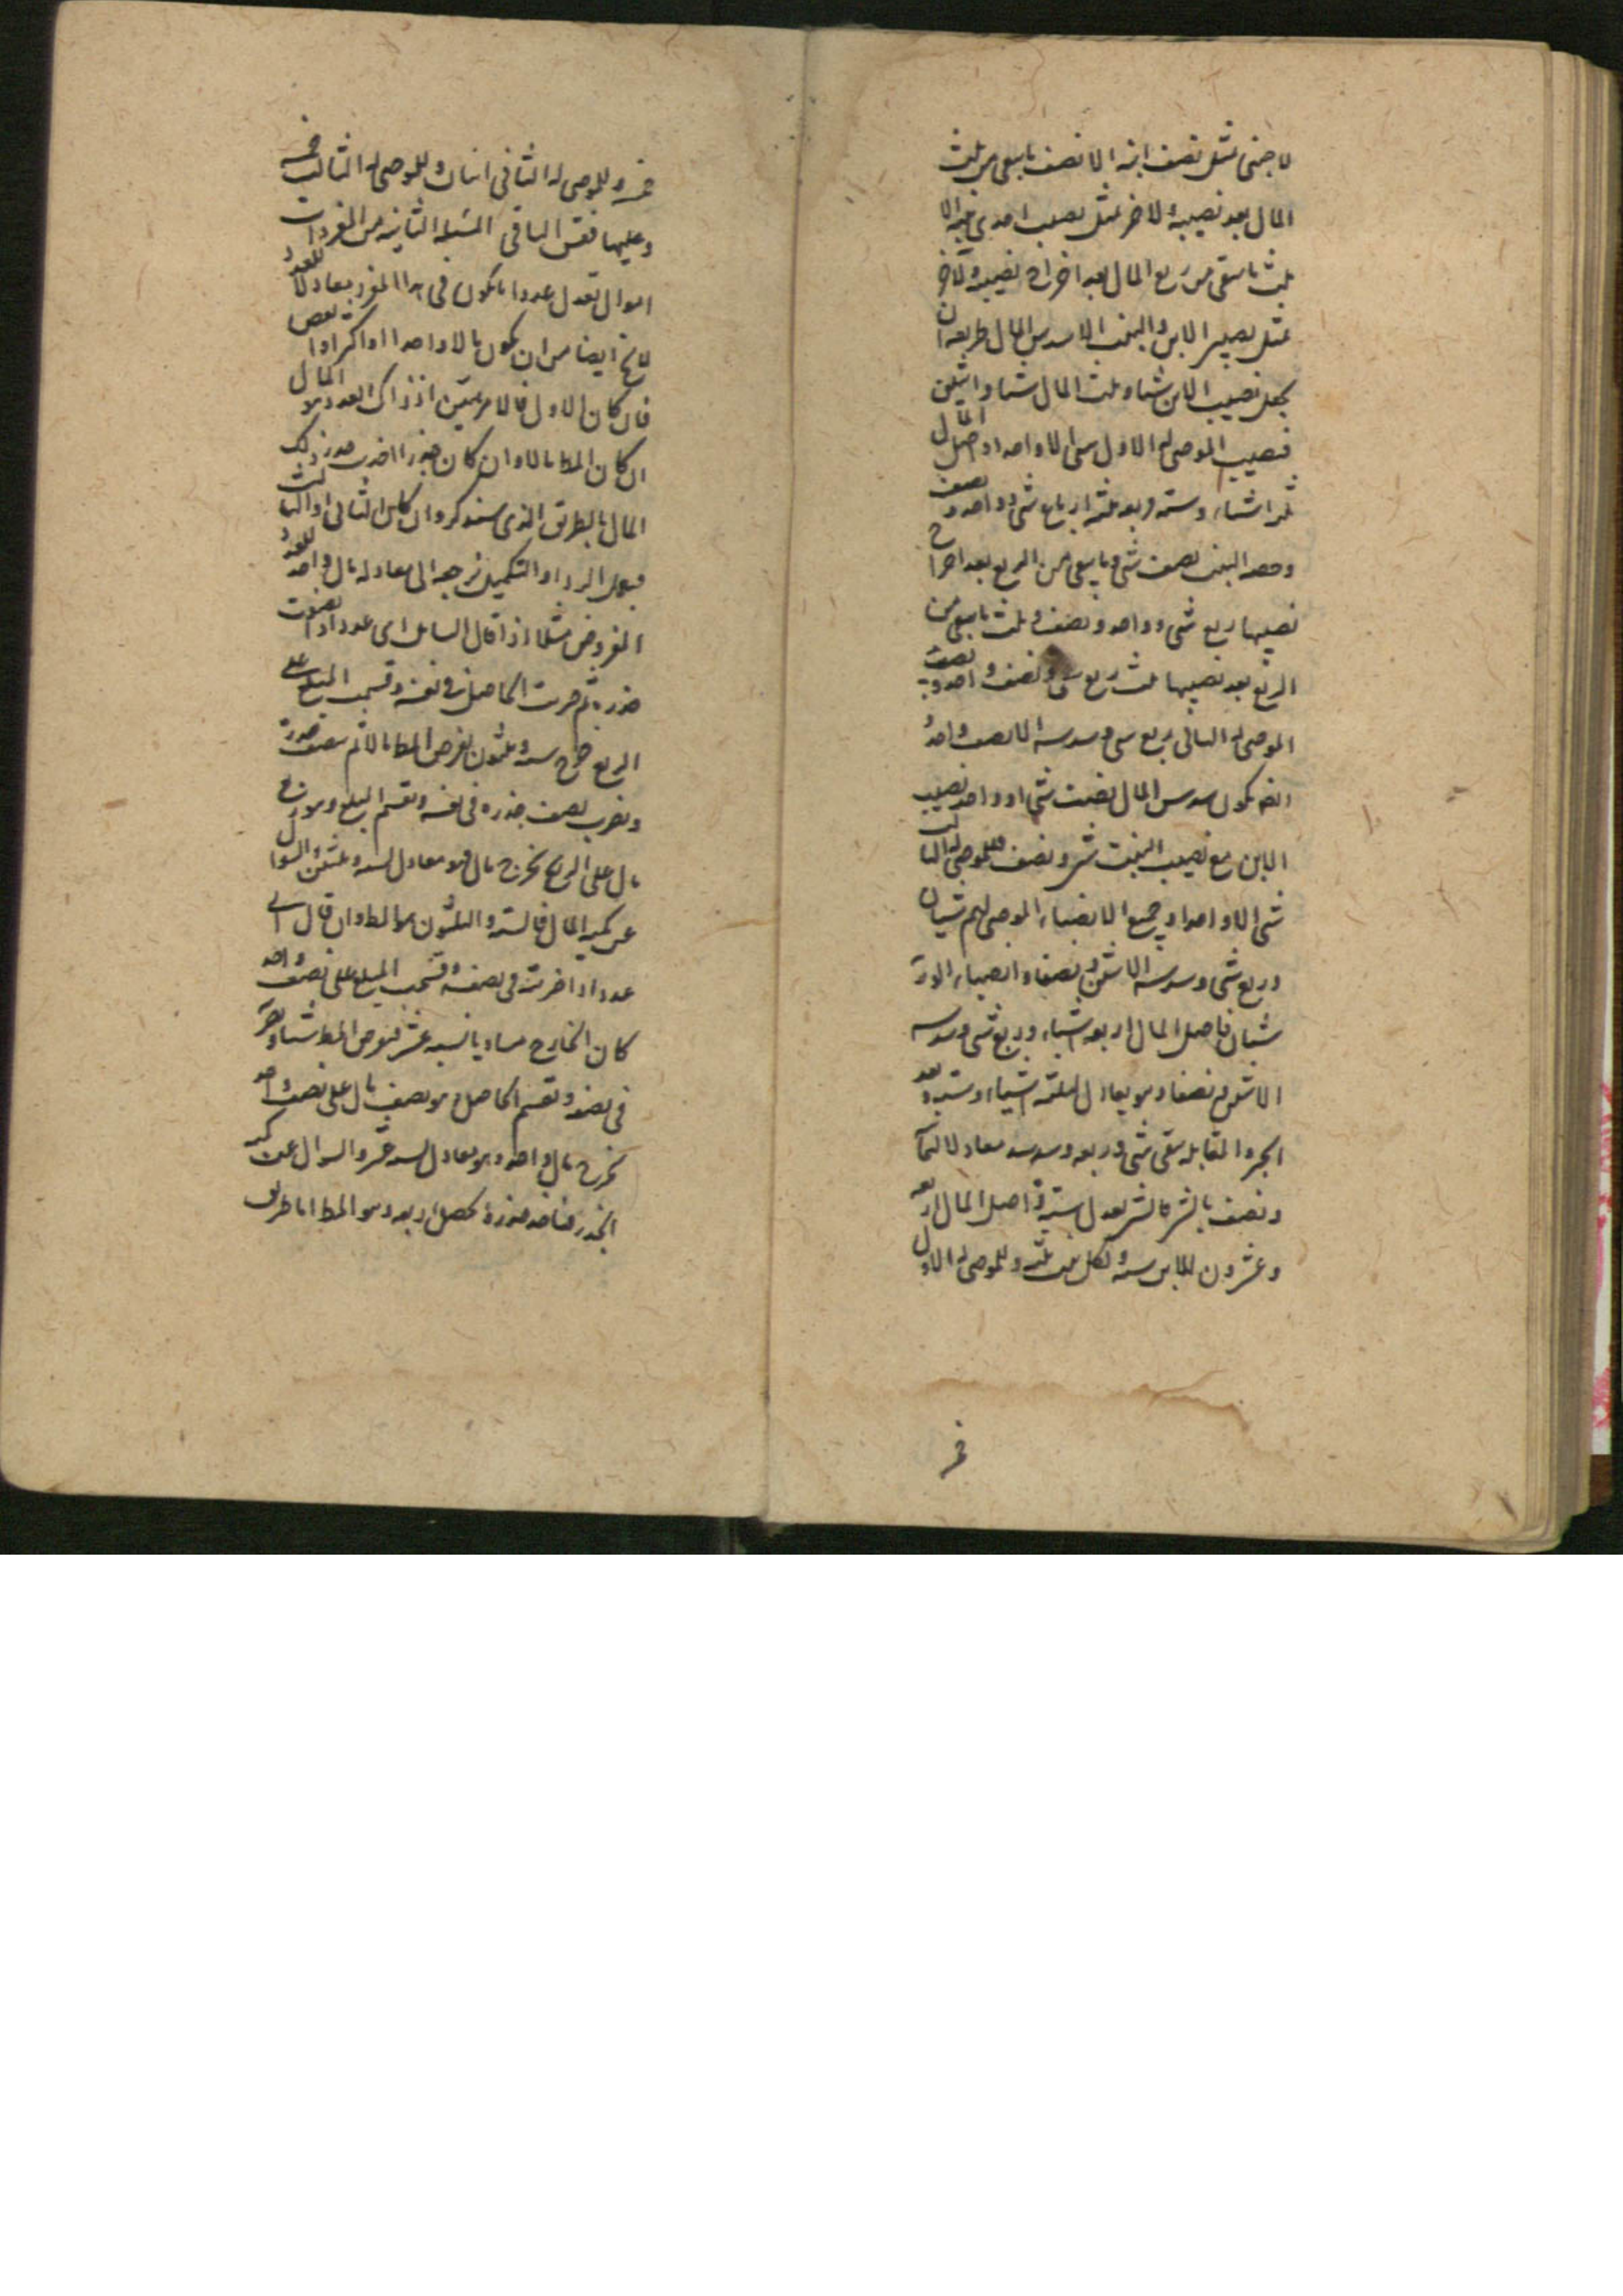 لاجنبى بمثل نصف ابنه الا نصف ما يبقى من ثلث
المال بعد نصيبه ولاخر بمثل نصيب احدى بنتيه الا
ثلث ما يبقى من ربع المال بعد اخراج نصيبه ولاخر
بمثل نصيبى الابن والبنت الا سدس المال طريقه ان
يجعل نصيب الابن شيئا وثلث المال شيئا واثنين
فنصيب الموصى له الاول شئ الا واحدا واصل المال
ثلثة اشياء وستة وربعه ثلثة ارباع شئ وواحد ونصف
وحصه البنت نصف شئ وما يبقى من الربع بعد اخراج
نصيبها ربع شئ وواحد ونصف وثلث ما يبقى من
الربع بعد نصيبها ثلث ربع شئ ونصف واحد
الموصى له الثانى ربع شئ وسدسه الا نصف واحد
يكون سدس المال نصف شئ وواحد ونصيب
الابن مع نصيب البنت شئ ونصف فللموصى له الثالث
شئ الا واحدا وجميع الانصباء الموصى لهم شيئان
وربع شئ وسدسه الا اثنين ونصفا وانصباء الورثة
شيئان فاصل المال اربعة اشياء وربع شئ وسدسه
الا اثنين ونصفا وهو يعادل ثلثة اشياء وستة وبعد
الجبر والمقابلة يبقى شئ وربعه وسدسه معادلا لثمانية
ونصف فالشئ يعدل ستة فاصل المال اربعة
وعشرون للابن ستة ولكل بنت ثلثة وللموصى له الاول
خمسة
خمسة وللموصى له الثانى اثنان وللموصى له الثالث خمسة
وعليها فقس الباقى المسئلة الثانية من المفردات
اموال تعدل عددا ما يكون فى هذا المفرد معادلا للعدد
لا يخ ايضا من ان يكون مالا واحدا او اكثر او بعض
فان كان الاول فالامر متبين اذ ذاك العدد هو المال
ان كان المط مالا وان كان جذرا اخذت جذر ذلك
المال بالطريق الذى سنذكر وان كان الثانى او الثالث
فبعمل الرد او التكميل نرجعه الى معادلة مال واحد للعدد
المفروض مثلا اذا قال السايل اى عدد اذا نصفت
جذره ثم ضربت الحاصل فى نفسه وقسمت المبلغ على
الربع خرج ستة وثلثون نفرض المط مالا ثم ننصف جذره
ونضرب نصف جذره فى نفسه ونقسم المبلغ وهو ربع
مال على الربع يخرج مال وهو معادل لستة وثلثين والسوال
عن كمية المال فالستة والثلثون هو المط وان قال اى
عدد اذا ضربته فى نصفه وقسمت المبلغ على نصف واحد
كان الخارج مساويا لستة عشر فنفرض المط شيئا ونضربه
فى نصفه ونقسم الحاصل وهو نصف مال على نصف واحد
يخرج مال واحد وهو معادل لستة عشر والسوال عن كمية
الجذر فناخذ جذره يحصل اربعة وهو المط اما طريق